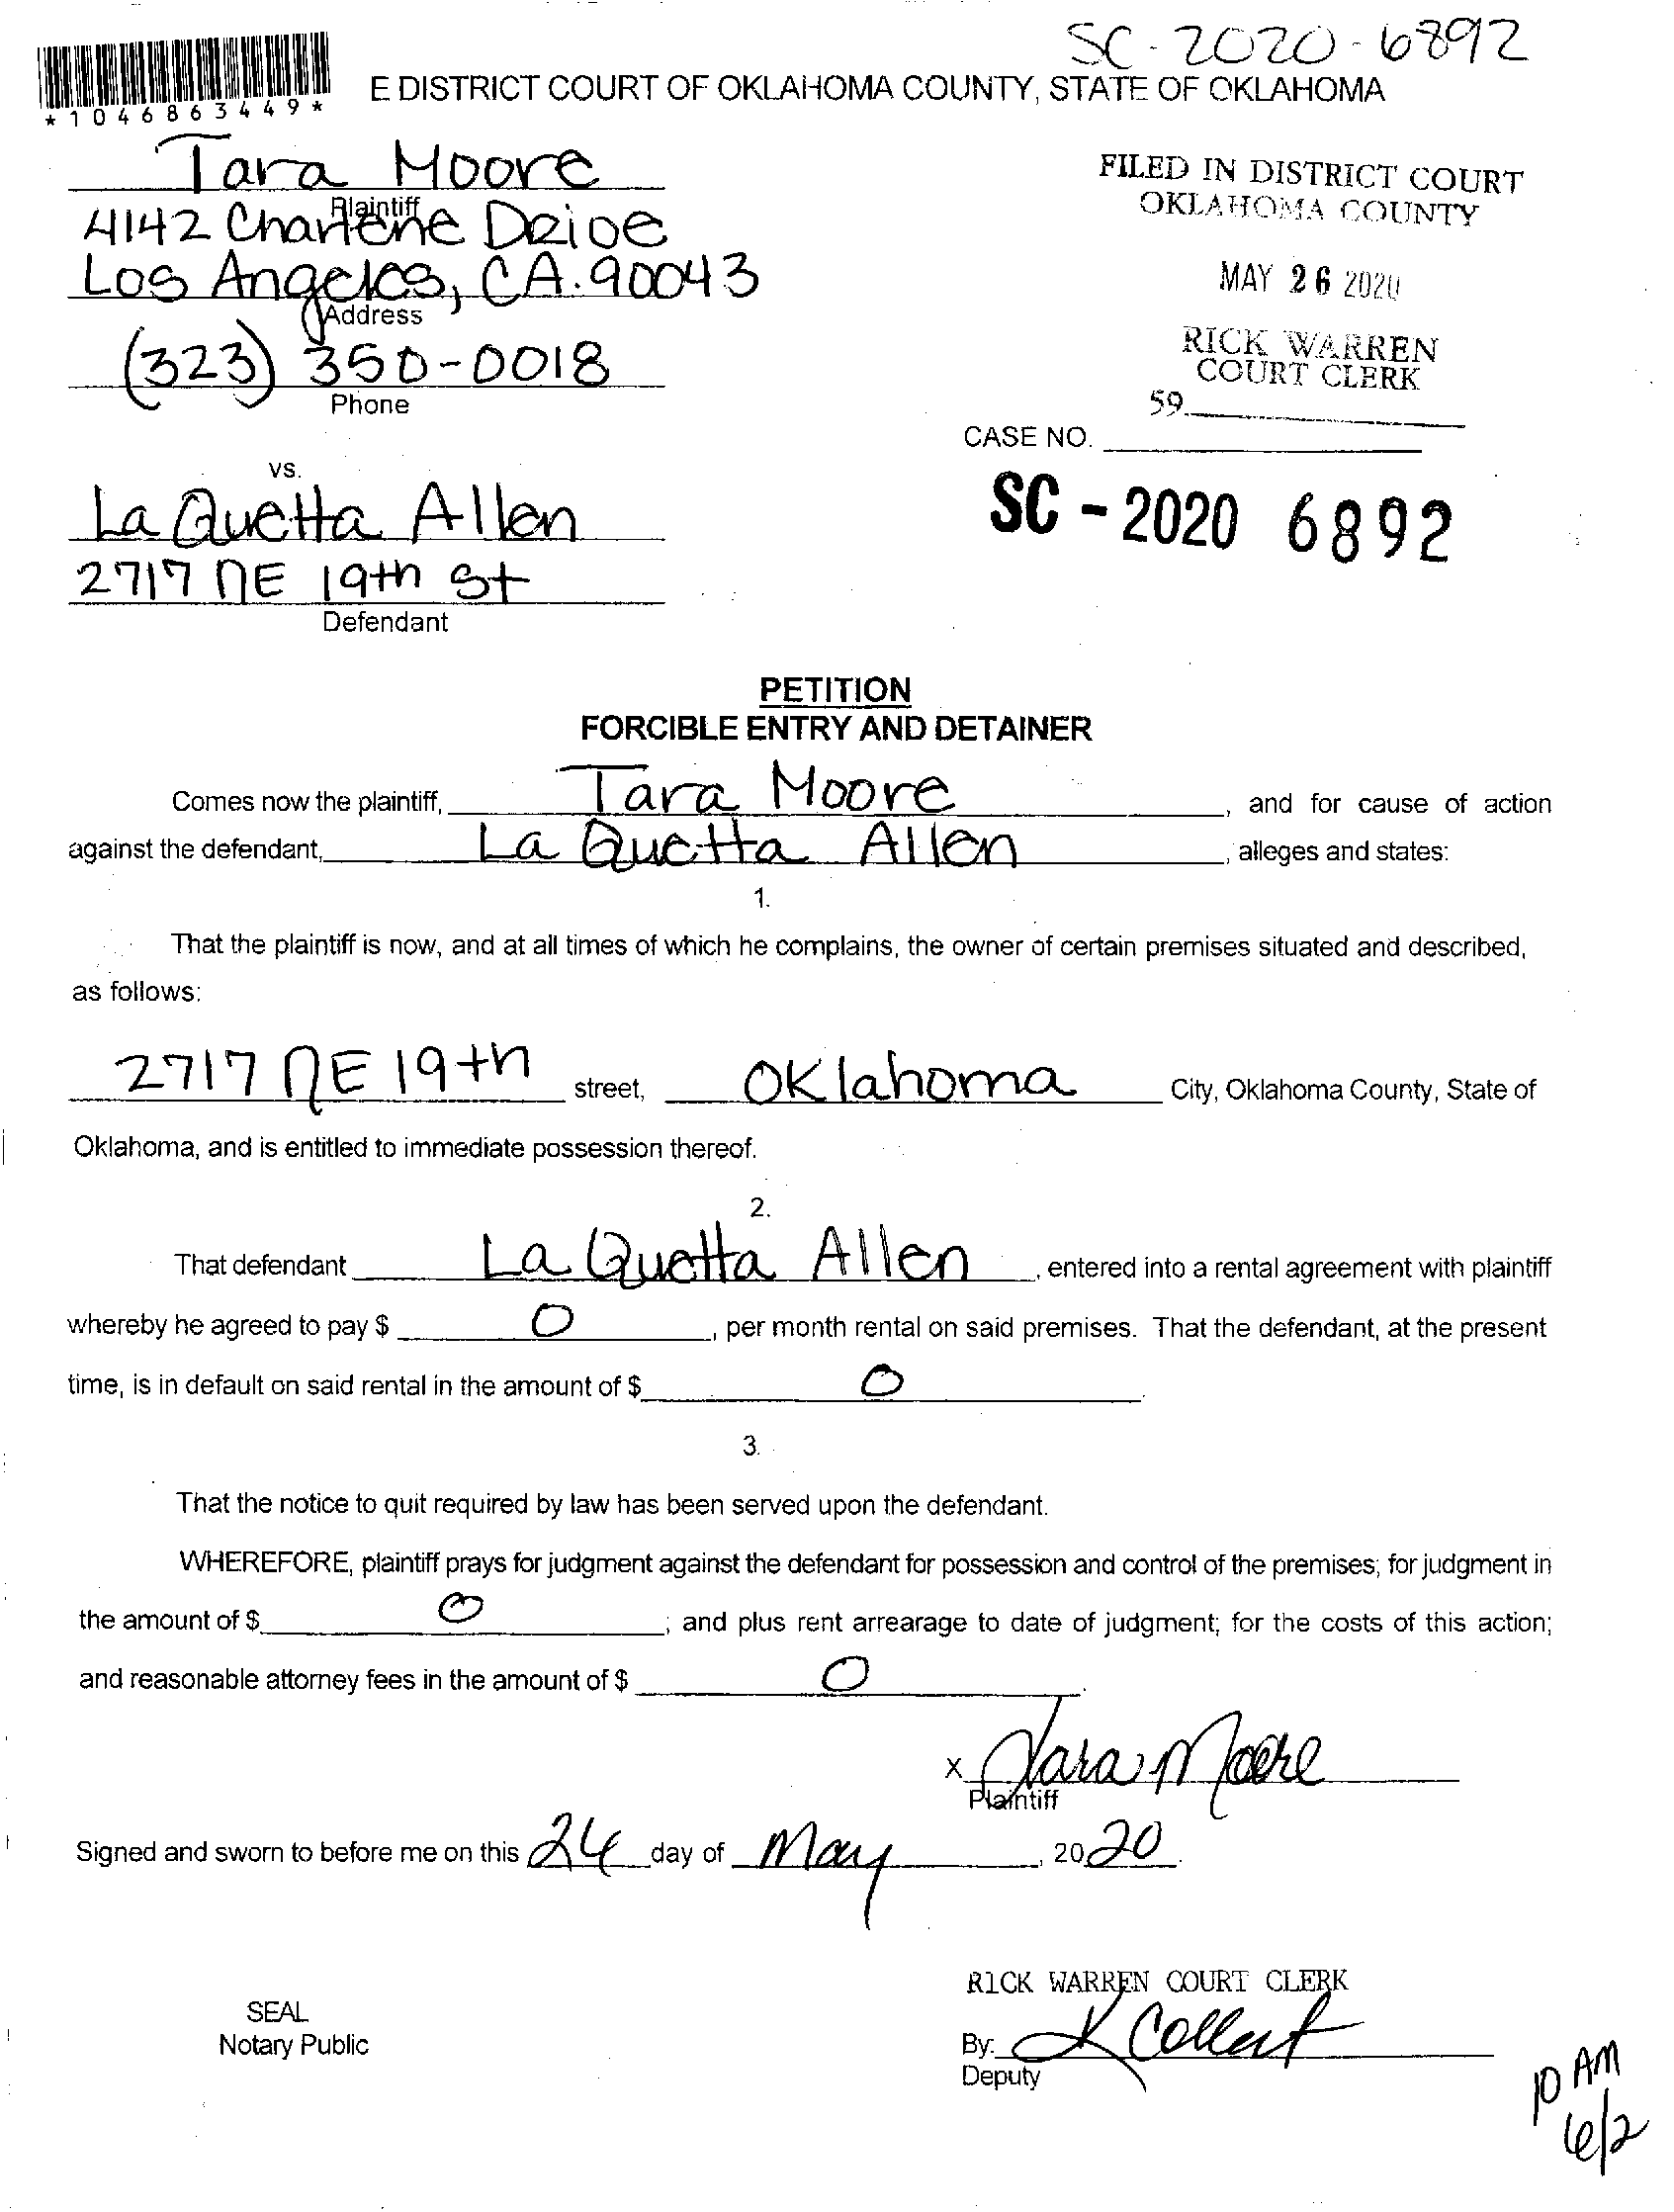 SC-2020-6892
*1046863449*
E DISTRICT COURT OF OKLAHOMA COUNTY, STATE OF OKLAHOMA
Tara Moore
Plaintiff
4142 Charlene Drive
Los Angeles, CA. 90043
Address
(323) 350-0018
Phone
FILED IN DISTRICT COURT
OKLAHOMA COUNTY
MAY 26 2020
RICK WARREN
COURT CLERK
59
CASE NO.
SC - 2020 6892
vs.
La Quetta Allen
2717 NE 19th St
Defendant
PETITION
FORCIBLE ENTRY AND DETAINER
Comes now the plaintiff, Tara Moore, and for cause of action
against the defendant, La Quetta Allen, alleges and states:
1.
That the plaintiff is now, and at all times of which he complains, the owner of certain premises situated and described,
as follows:
2717 NE 19th street, Oklahoma City, Oklahoma County, State of
Oklahoma, and is entitled to immediate possession thereof.
2.
That defendant La Quetta Allen, entered into a rental agreement with plaintiff
whereby he agreed to pay $ 0, per month rental on said premises. That the defendant, at the present
time, is in default on said rental in the amount of $ 0.
3.
That the notice to quit required by law has been served upon the defendant.
WHEREFORE, plaintiff prays for judgment against the defendant for possession and control of the premises; for judgment in
the amount of $ 0; and plus rent arrearage to date of judgment; for the costs of this action;
and reasonable attorney fees in the amount of $ 0.
x Tara Moore
Plaintiff
Signed and sworn to before me on this 24 day of May, 2020.
RICK WARREN COURT CLERK
SEAL
Notary Public
By: K Collert
Deputy
10 AM
6/2